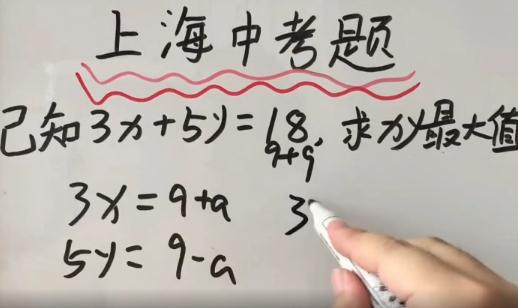 上海中考题
已知3x+5y=18,求xy最大值
9+9
3x=9+a
3
5y=9-a